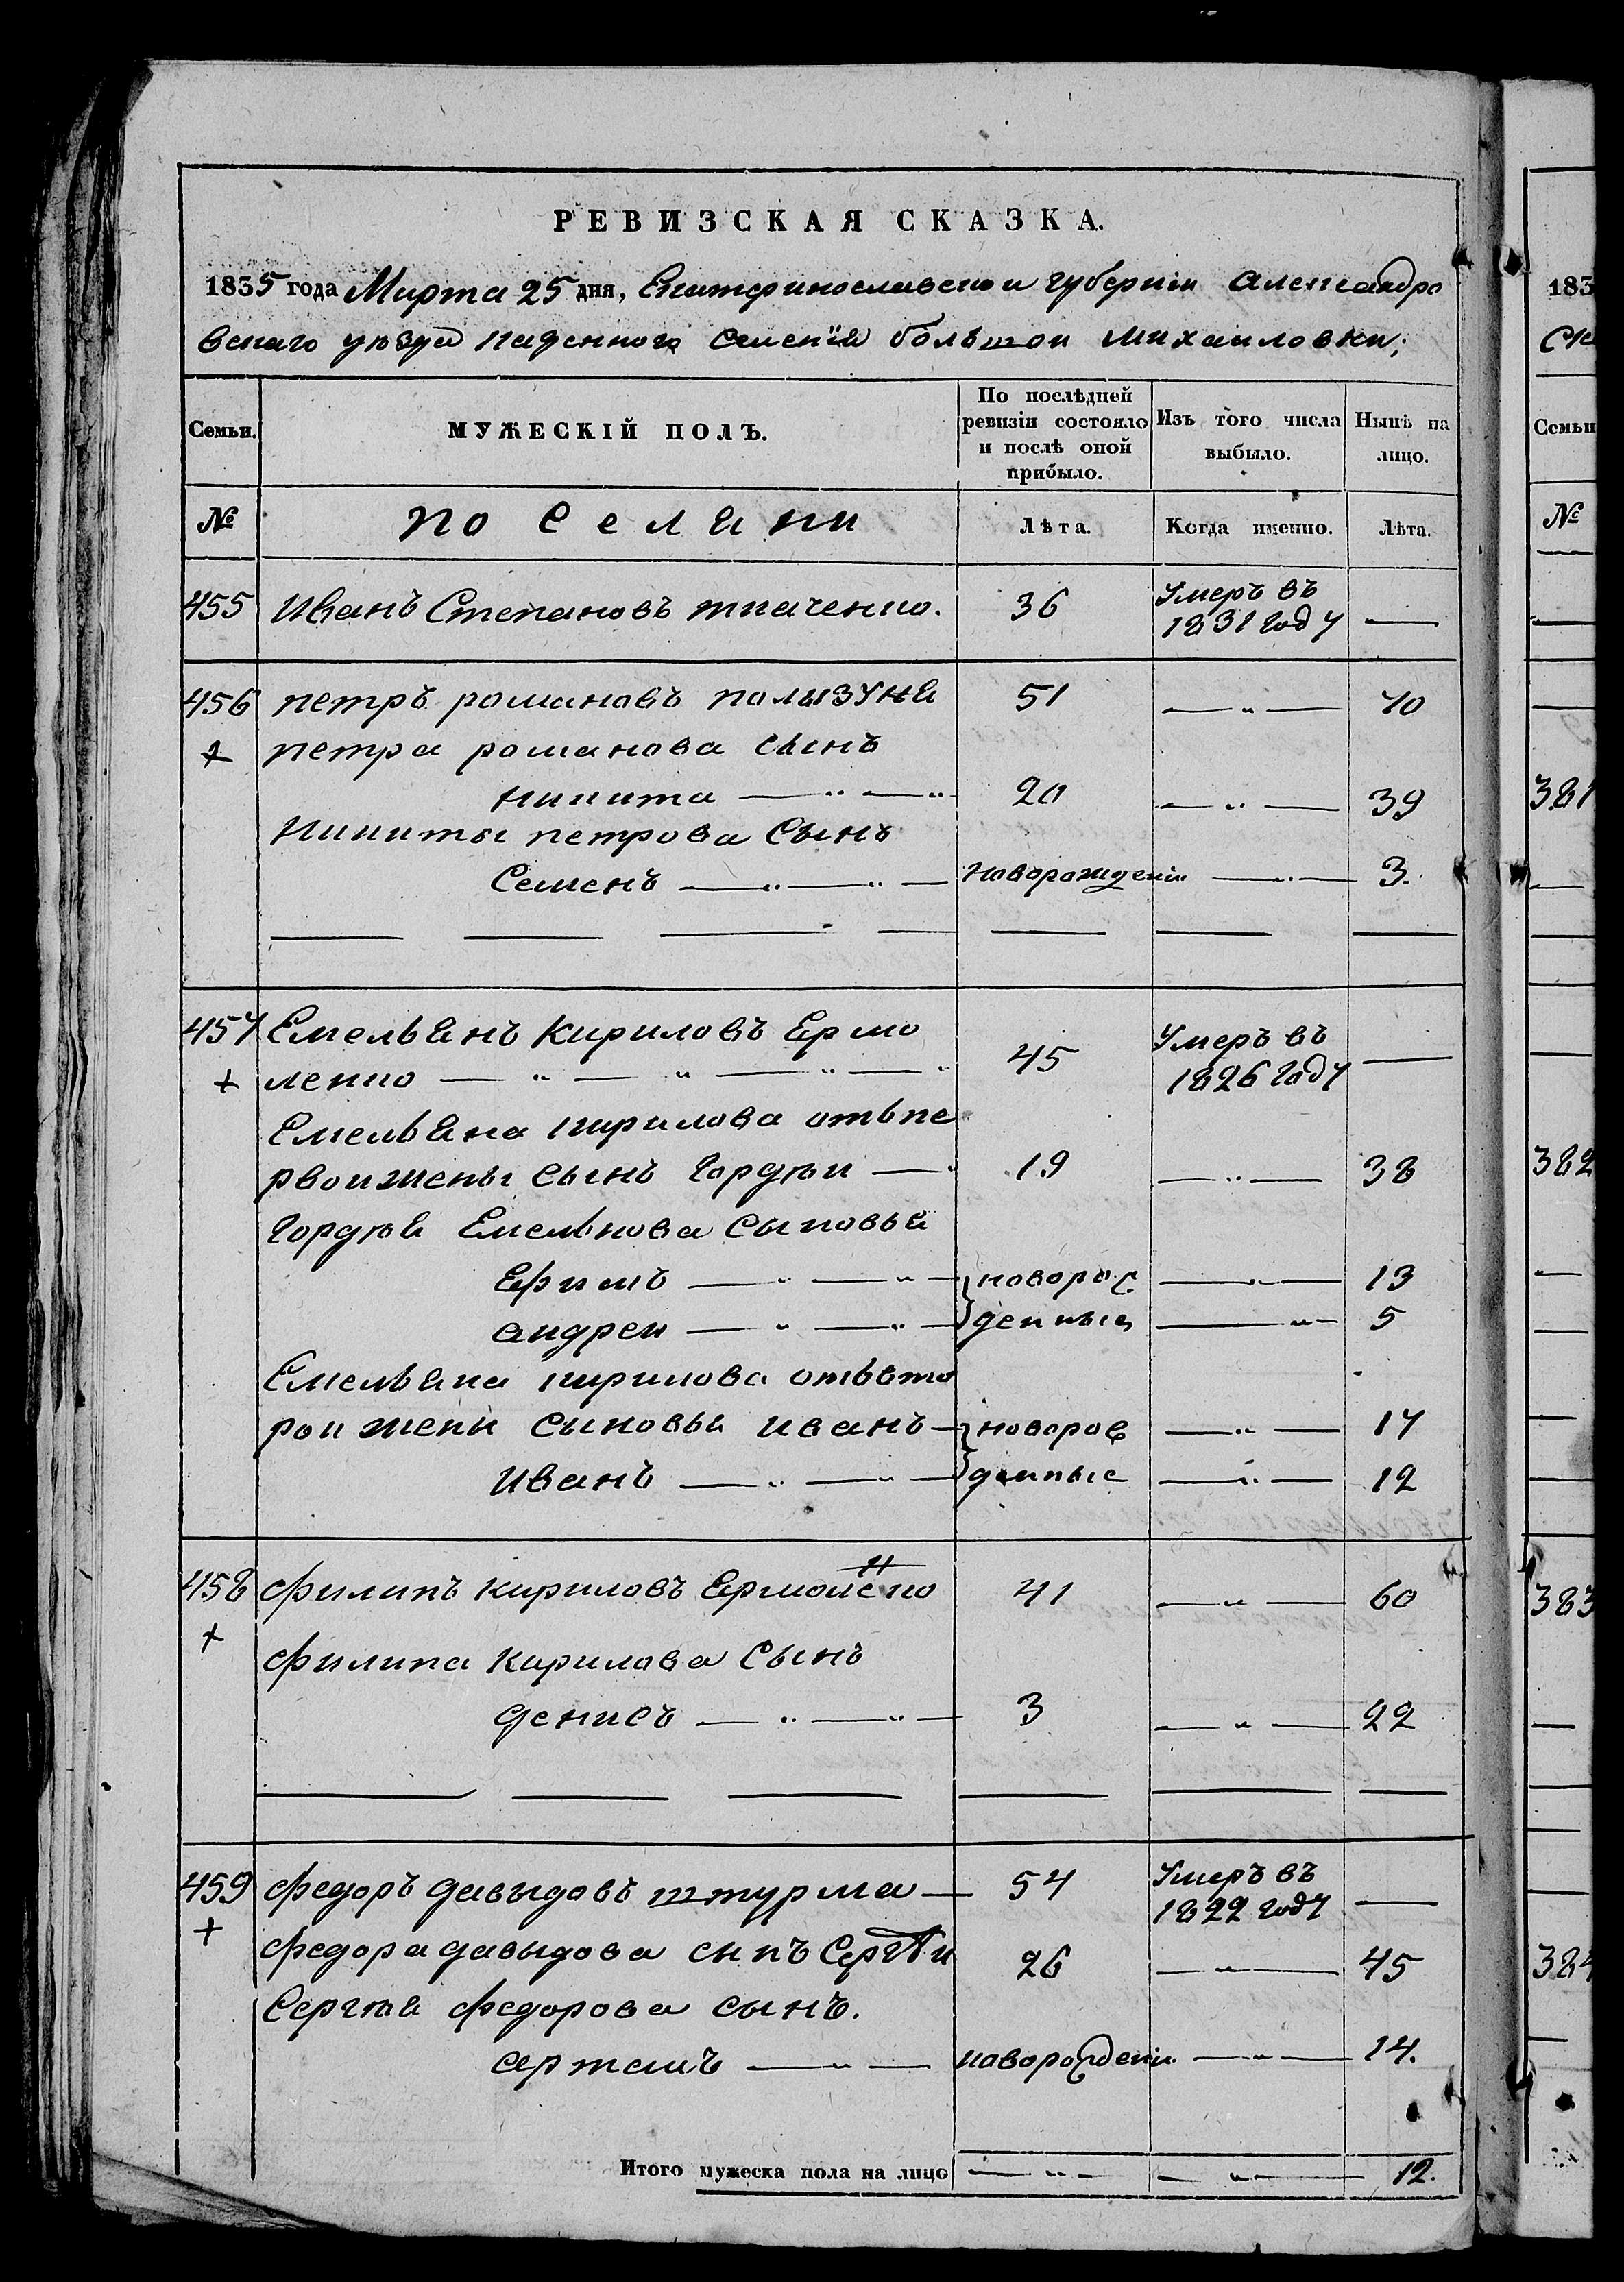 РЕВИЗСКАЯ СКАЗКА.
1835 года Марта 25 дня, Екатеринославскои губерніи Александро
вскаго уѣзда казенного селенія большои михаиловки;
Семьи.
МУЖЕСКІЙ ПОЛЪ.
По послѣдней
ревизіи состояло
и послѣ оной
прибыло.
Изъ того числа
выбыло.
Нынѣ на
лицо.
№
поселяни
Лѣта.
Когда именно.
Лѣта.
455 Иванъ Степановъ ткаченко. 36 Умеръ въ
1831 году —
456 петръ романовъ полызуня 51 — „ — 70
+ петра романова сынъ
никита — „ — „ 20 — „ — 39
Никиты петрова Сынъ
Семенъ — „ — „ — новорожденіи — „ — 3.
457 Емельянъ Кириловъ Ермо
+ ленко — „ — „ — „ — „ 45 Умеръ въ
1826 году —
Емельяна кирилова отъпе
рвои жены сынъ Гордѣи — 19 — „ — 38
Гордѣя Емельнова Сыновья
Ефимъ — „ — „ — новорож — „ — 13
андреи — „ — „ — денные — „ — 5
Емельяна кирилова отъвто
рои жени сыновья иванъ — новорож — „ — 17
Иванъ — „ — „ — денные — „ — 12
458 филипъ кириловъ Ермолено 41 — „ — 60
н
+
филипа Кирилова Сынъ
денисъ — „ — „ — 3 — „ — 22
459 федоръ давыдовъ штурма — 54 Умеръ въ
1822 году —
+
федора давыдова синъ Сергѣи 26 — „ — 45
Сергѣя федорова сынъ.
артемъ — „ — новорожденіи — „ — 14.
Итого мужеска пола на лицо — „ — — „ — 12.
183
Семьи
№
381
382
383
384